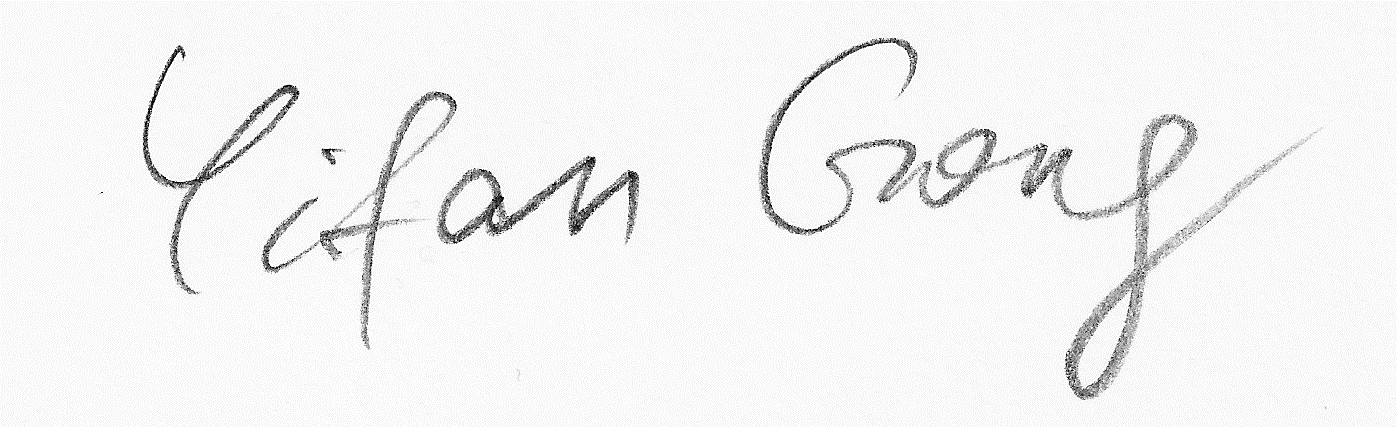 Yifan Gong